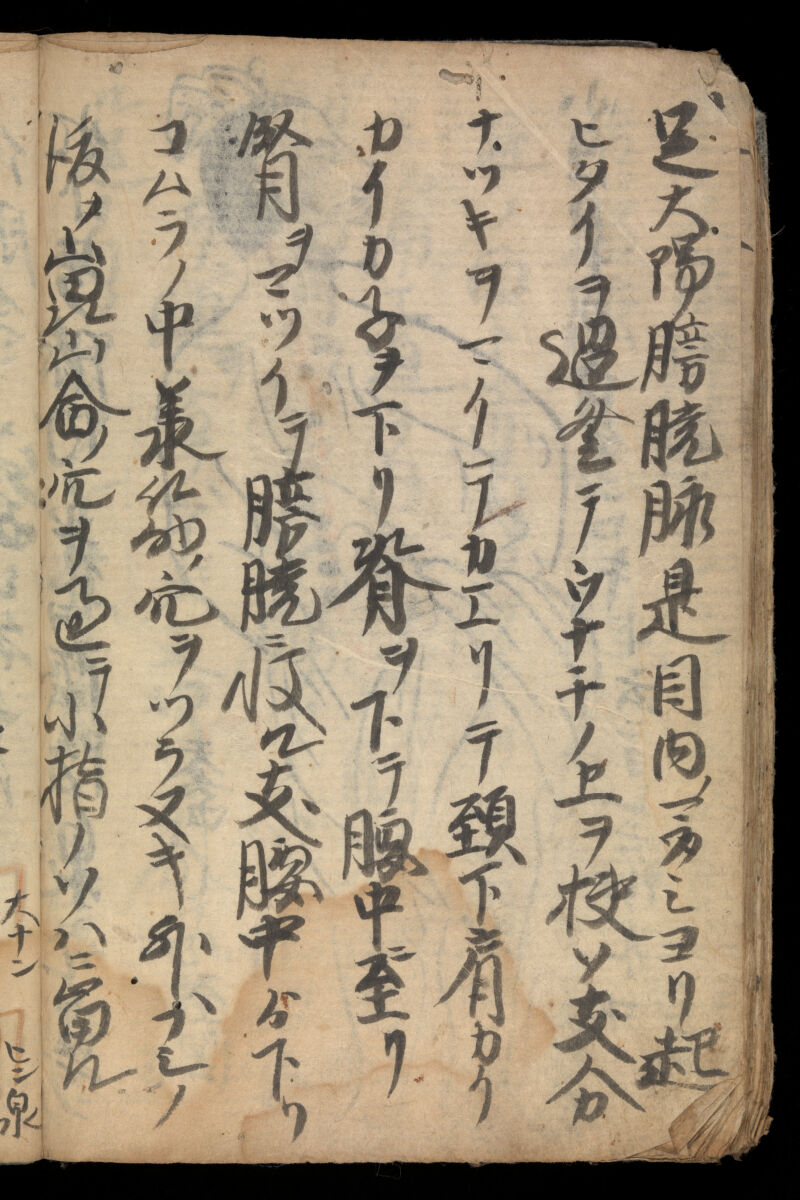 足大陽膀胱脉是目内ノマカシヨリ起
ヒタイヲ過登テウナチノ上ヲ挟ソ支分
ナツキヲマクイテカエリテ頚下肩カク
カイカ子ヲ下リ脊ヲ下テ腰中ニ至リ
腎ヲマツイテ膀胱ニ皈ル支腰中分下リ
コムラノ中 承筋ノ穴ヲツラヌキ外ノ
後ノ崑崙ノ穴ヲ過テ小指ノソハニ留ル
大ナン
泉